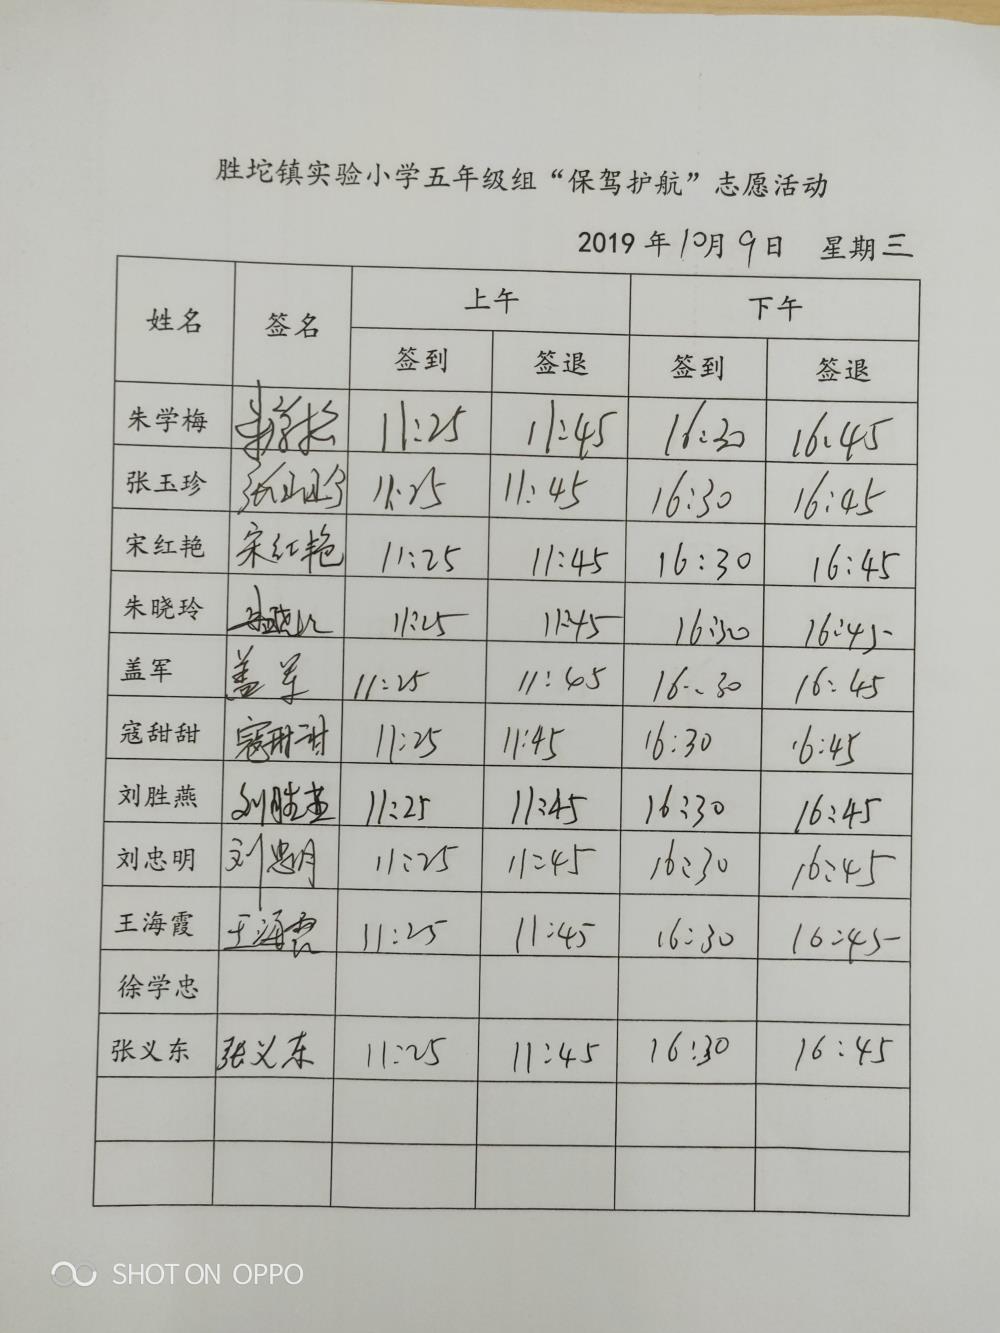 胜坨镇实验小学五年级组“保驾护航”志愿活动
2019 年 10月 9日 星期三
姓名 签名 上午 下午
签到 签退 签到 签退
朱学梅 朱学梅 11:25 11:45 16:30 16:45
张玉珍 张玉珍 11:25 11:45 16:30 16:45
宋红艳 宋红艳 11:25 11:45 16:30 16:45
朱晓玲 朱晓玲 11:25 11:45 16:30 16:45
盖军 盖军 11:25 11:45 16:30 16:45
寇甜甜 寇甜甜 11:25 11:45 16:30 16:45
刘胜燕 刘胜燕 11:25 11:45 16:30 16:45
刘忠明 刘忠明 11:25 11:45 16:30 16:45
王海霞 王海霞 11:25 11:45 16:30 16:45
徐学忠
张义东 张义东 11:25 11:45 16:30 16:45
SHOT ON OPPO